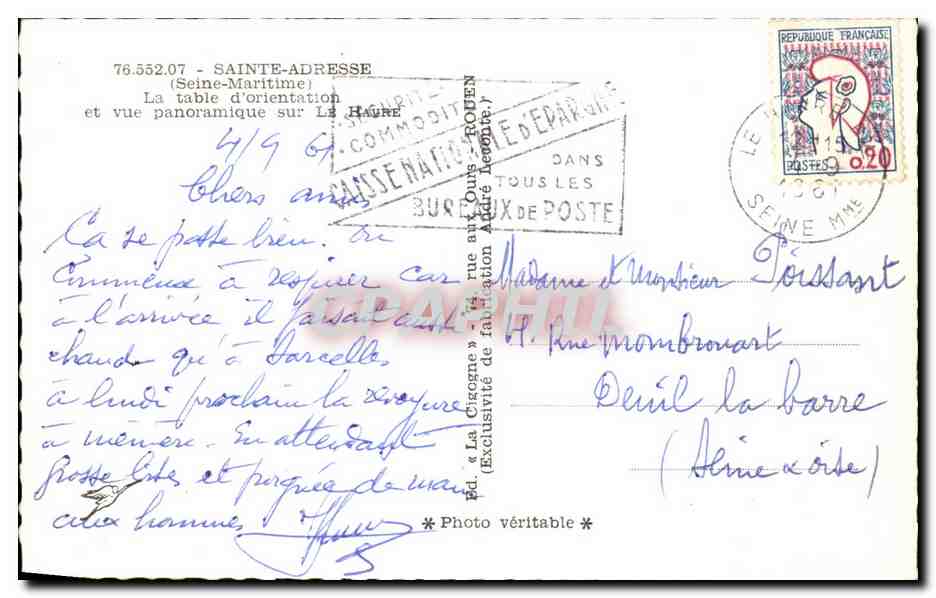 76.552.07 - SAINTE-ADRESSE
(Seine-Maritime)
La table d'orientation
et vue panoramique sur LE HAVRE
4/9 61
Chers amis
Ça se passe bien. on
commence à respirer car
à l'arrivée il faisait aussi
chaud qu'à Sarcelles
à lundi prochain la revoyure
à mémère. En attendant
grosse bises et poignée de main
aux hommes
Ed. « La Cigogne » - rue aux Ours - ROUEN
(Exclusivité de fabrication André Leconte.)
* Photo véritable *
SÉCURITÉ
COMMODITÉ
CAISSE NATIONALE D'EPARGNE
DANS
TOUS LES
BUREAUX DE POSTE
REPUBLIQUE FRANÇAISE
POSTES 0,20
LE
15
9
1961
SEINE Mme
Madame et Monsieur Poissant
Rue Mombrouart
Deuil la barre
(Seine & oise)
CPAPHIL